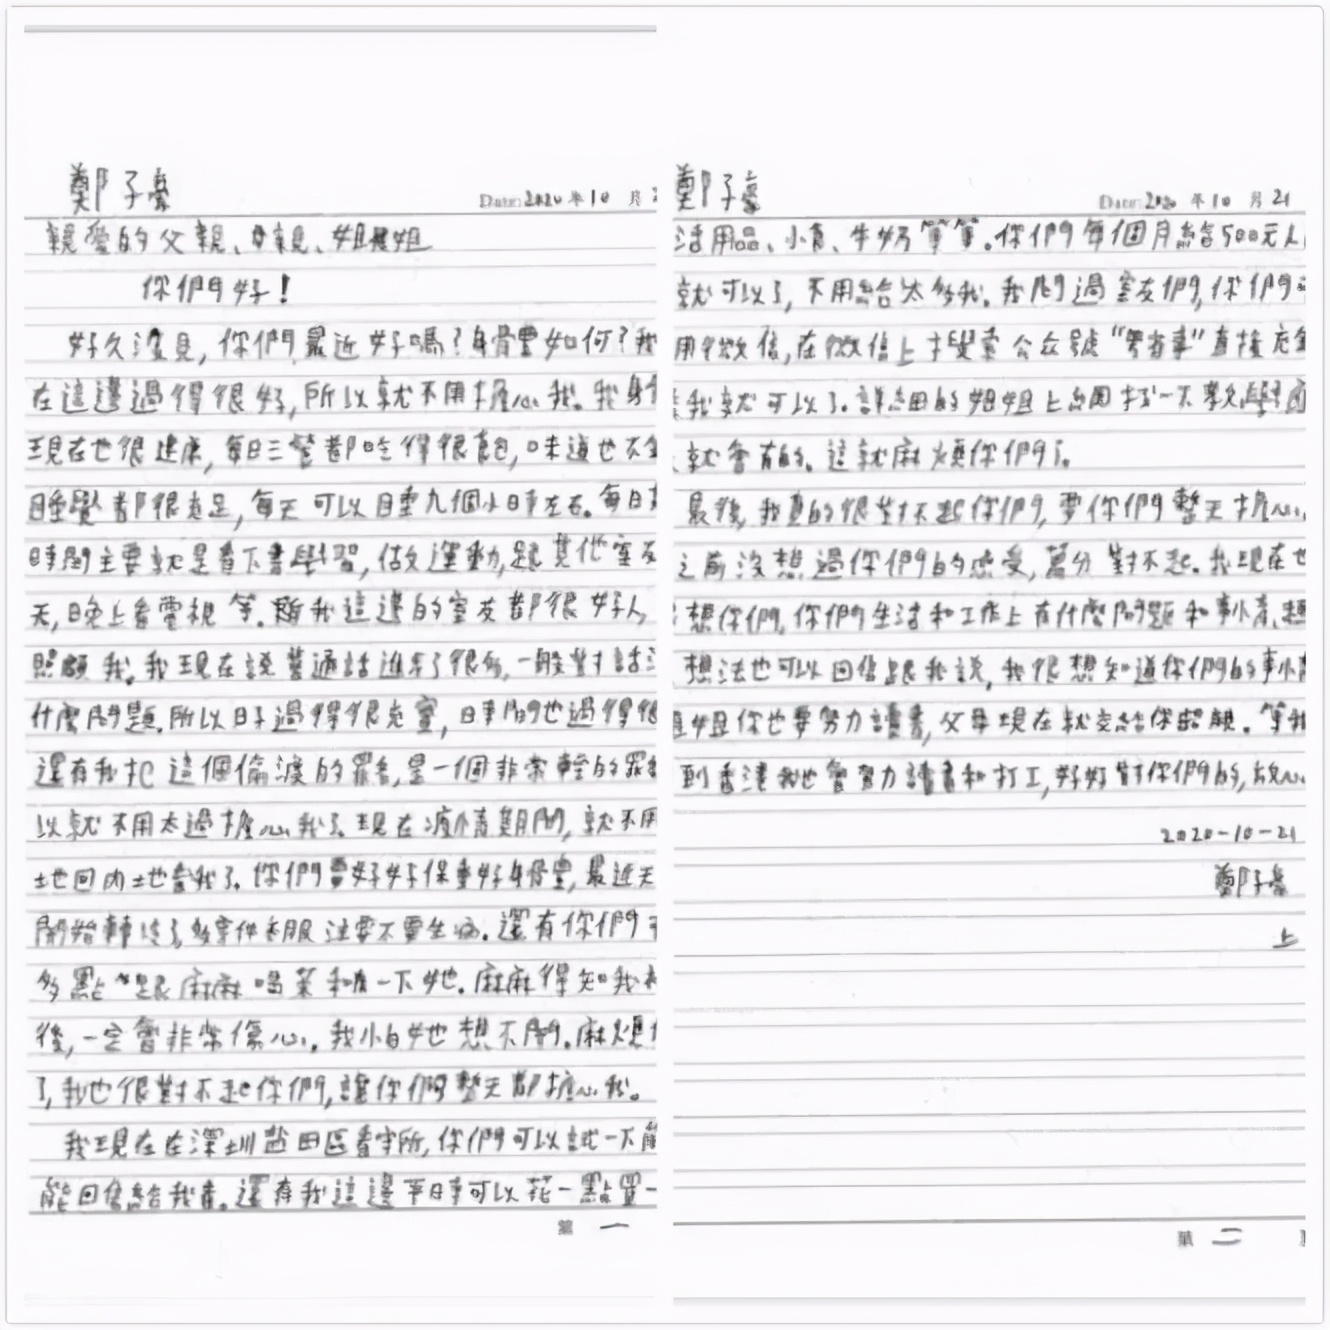 鄭子豪
Date: 2020 年 10 月 2
親愛的父親、母親、姐姐
你們好！
好久沒見，你們最近好嗎？身體如何？我
在這邊過得很好，所以就不用擔心我。我身
現在也很健康，每日三餐都吃得很飽，味道也不
睡覺都很充足，每天可以睡九個小時左右。每日
時間主要就是看下書學習，做運動，跟其他室友
天，晚上看電視等。我這邊的室友都很好人，
照顧我。我現在說普通話進步了很多，一般對話
什麼問題。所以日子過得很充實，時間也過得很
還有我犯這個偷渡的罪名，是一個非常輕的罪
以就不用太過擔心我了。現在疫情期間，就不用
地回內地看我了。你們要好好保重好身體，最近天
開始轉涼了，多穿件衣服注要不要生病。還有你們
多點跟麻麻喝茶和 一下她。麻麻得知我
後，一定會非常傷心。我怕她想不開。麻煩
了，我也很對不起你們，讓你們整天都擔心我。
我現在在深圳盐田區看守所，你們可以試一下
能回信給我看。還有我這邊平時可以花一點買一
第 一
鄭子豪
Date: 2020 年 10 月 21
活用品、小食、牛奶等等。你們每個月給500元人
就可以了，不用給太多我。我問過室友們，你們
用微信，在微信上搜索公众號“粤省事”直接充
我就可以了。詳細的姐姐上網打一下
就會有的。這就麻煩你們了。
最後，我真的很對不起你們，要你們整天擔心。
之前沒想過你們的感受，萬分對不起。我現在也
想你們，你們生活和工作上有什麼問題和事情、
想法也可以回信跟我說，我很想知道你們的事情
姐姐你也要努力讀書，父母現在就交給你照顧。等我
到香港我也會努力讀書和打工，好好對你們的，放心
2020-10-21
鄭子豪
上
第 二